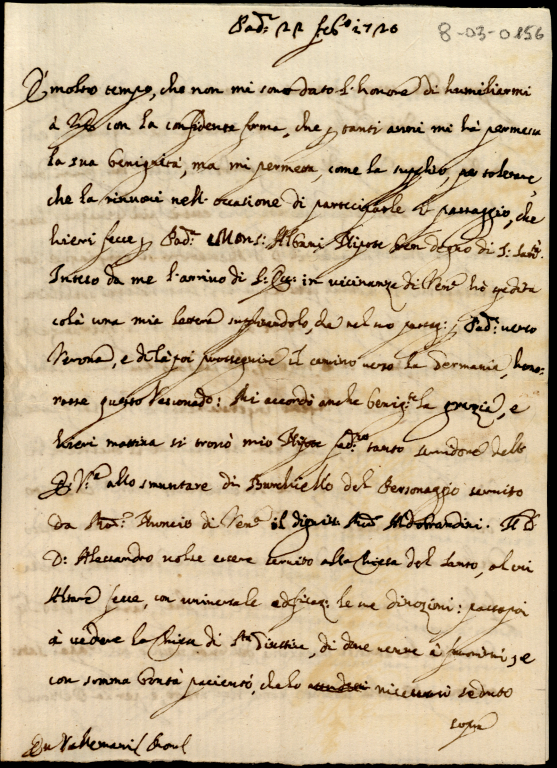 Pad.ª 22 feb.º 1720
8-03-0156
È molto tempo, che non mi sono dato l'honore di humiliarmi
à con la confidente forma, che p tanti anni mi hà permessa
la sua benignità, ma mi permetta, come la supplico, per tolerare,
che la rinuovi nell'occasione di participarle il passaggio, che
hieri fece p Pad.ª Mons.r Albani Nipote ben degno di S. Sant.à
Inteso da me l'arrivo di S. Ecc. in vicinanza di Ven.ª hò spedita
colà una mia lettera supplicandolo, che nel suo passag.º p Pad.ª verso
Verona, e di là poi proseguire il camino verso la Germania, hono-
rasse questo Vescovado: Mi accordò anche benig.te la grazia, e
hieri mattina si trovò mio Nipote tanto servidore dell'
allo smontare di Burchiello del Personaggio servito
da Nuncio di Ven.ª il dignis.º Aldobrandini. Il
D. Alessandro volse essere servito alla Chiesa del Santo, al cui
Altare fece, con universale le sue divozioni: passò poi
à vedere la Chiesa di S.ta Giustina, di dove venne à, e
con somma bontà pacientò, che lo ricevessi seduto
sopra